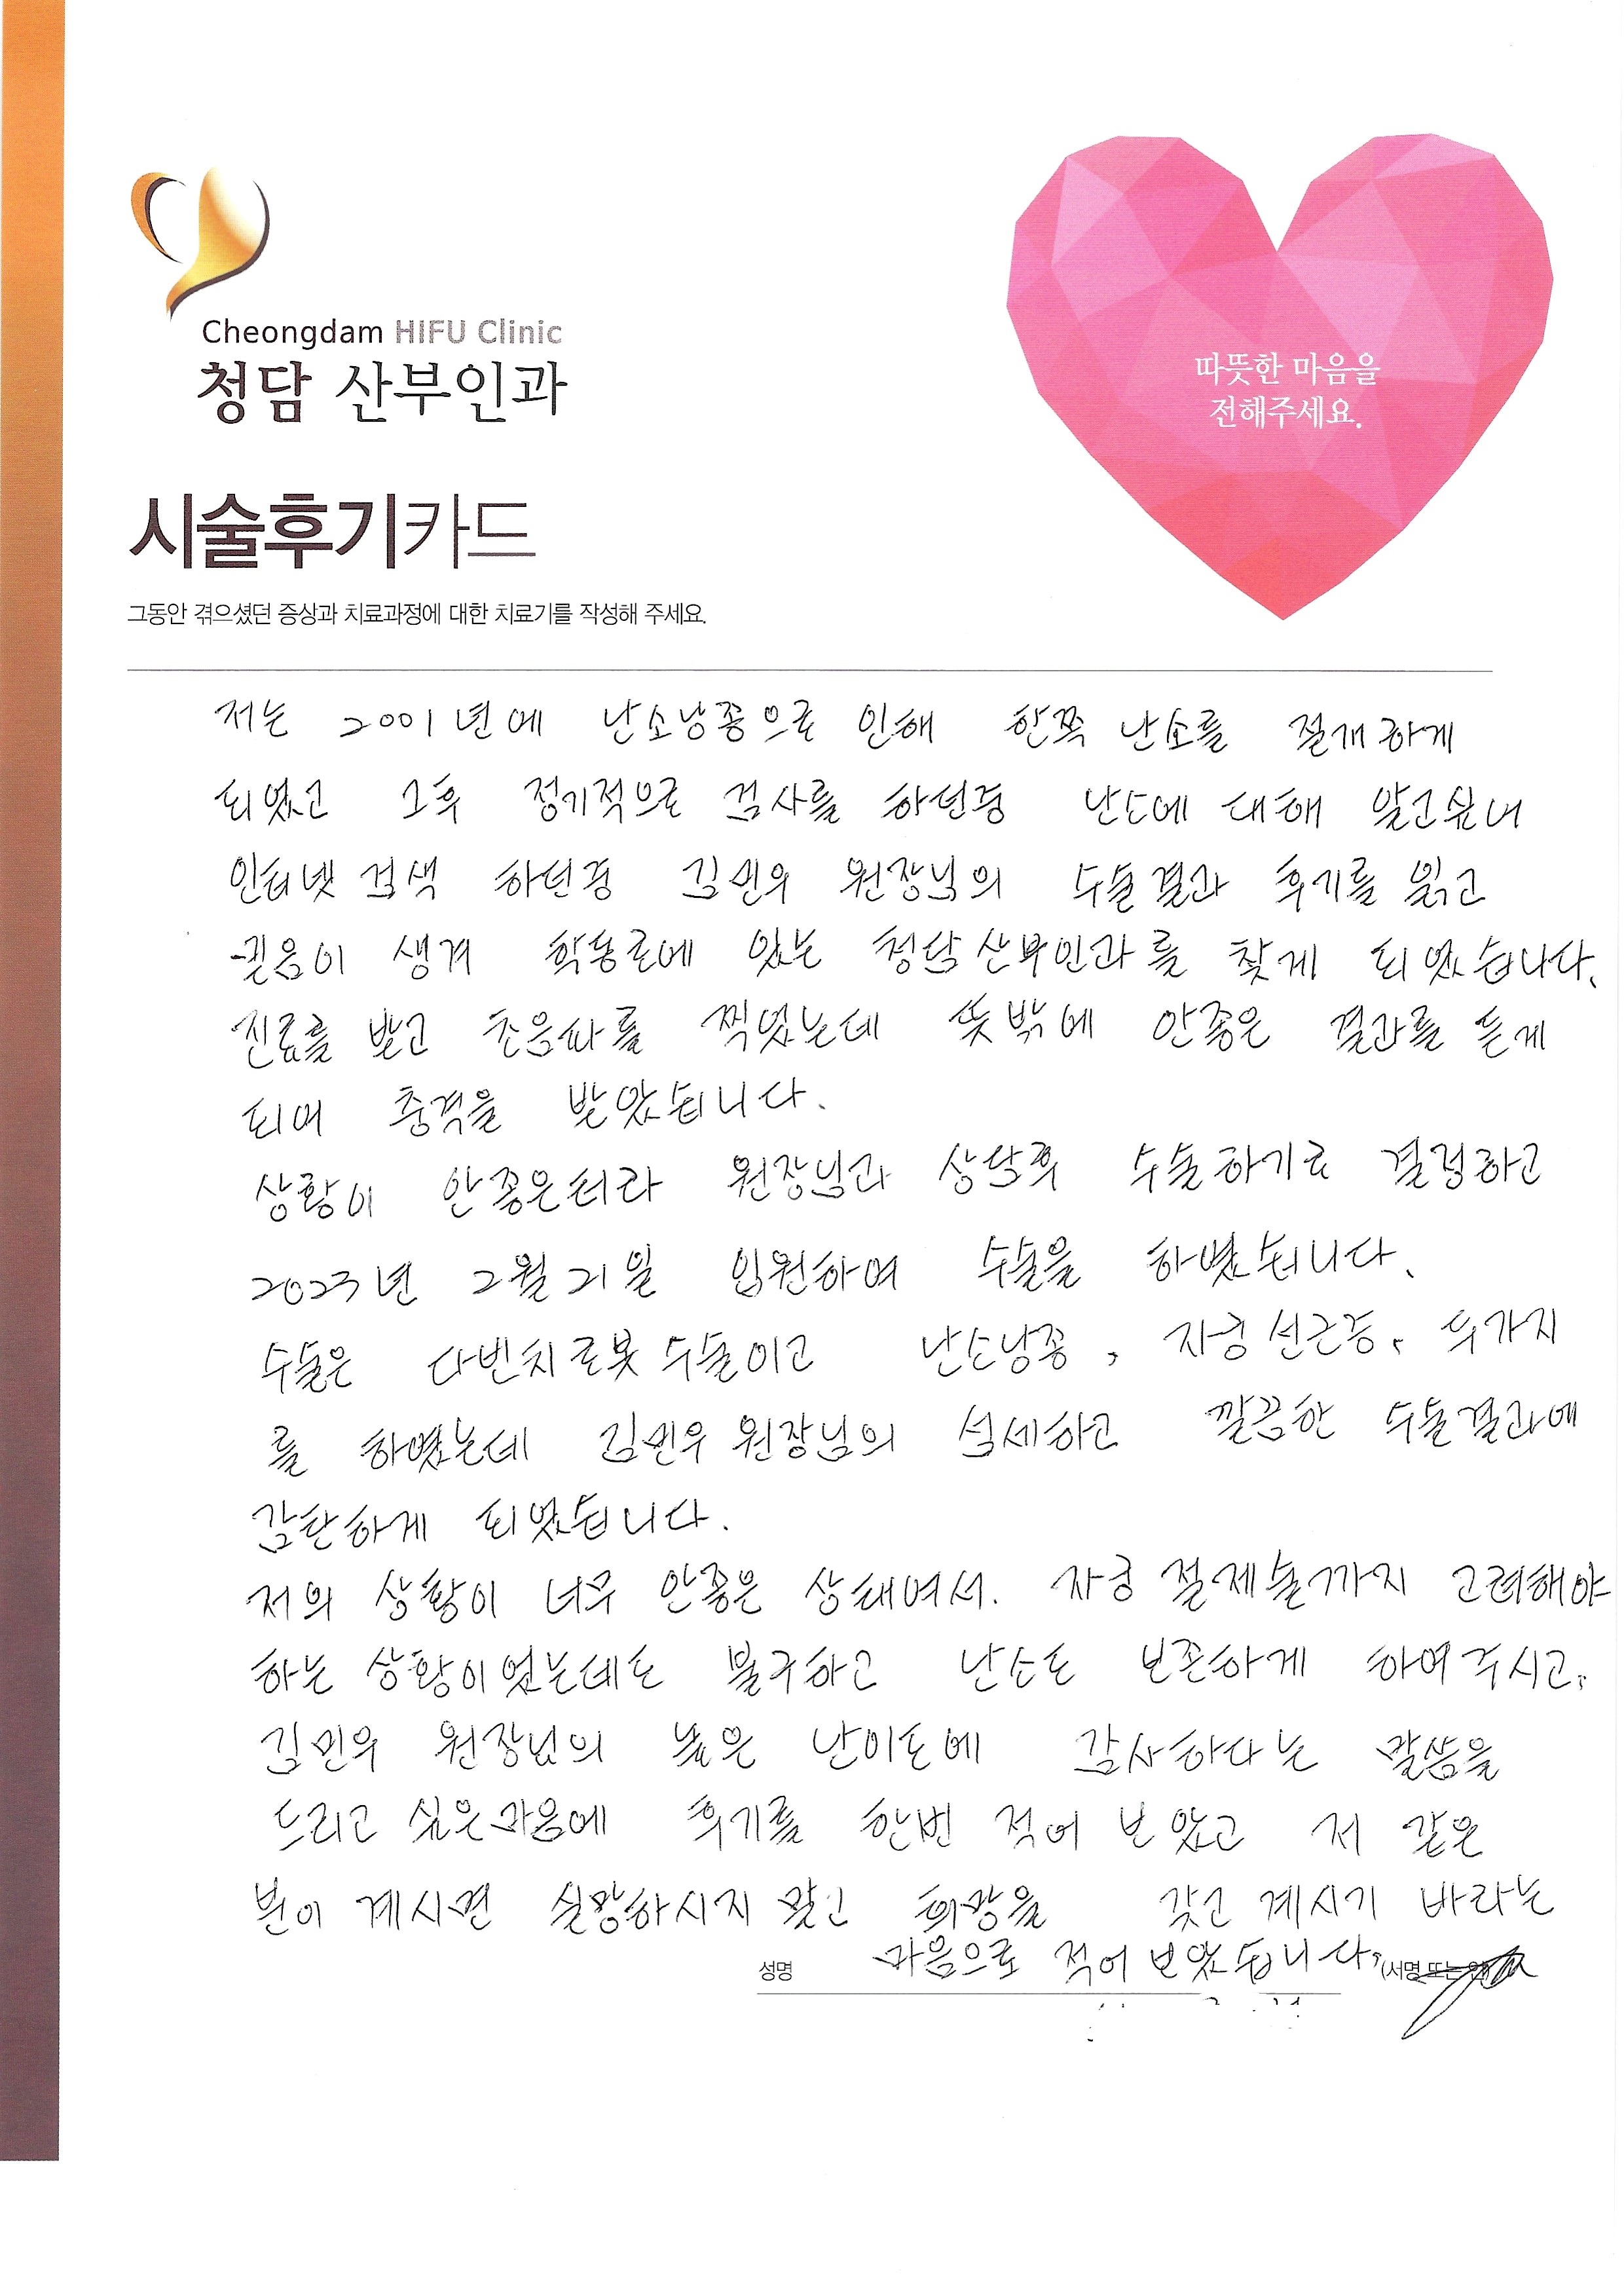 Cheongdam HIFU Clinic
청담 산부인과
따뜻한 마음을
전해주세요.
시술후기카드
그동안 겪으셨던 증상과 치료과정에 대한 치료기를 작성해 주세요.
저는 2001년에 난소낭종으로 인해 한쪽 난소를 절개하게
되었고 그후 정기적으로 검사를 하던중 난소에 대해 알고싶어
인터넷 검색 하던중 김민우 원장님의 수술결과 후기를 읽고
믿음이 생겨 학동로에 있는 청담산부인과를 찾게 되었습니다.
진료를 받고 초음파를 찍었는데 뜻밖에 안좋은 결과를 듣게
되어 충격을 받았습니다.
상황이 안좋은터라 원장님과 상담후 수술하기로 결정하고
2023년 2월 21일 입원하여 수술을 하였습니다.
수술은 다빈치로봇 수술이고 난소낭종, 자궁선근증, 두가지
를 하였는데 김민우 원장님의 섬세하고 깔끔한 수술결과에
감탄하게 되었습니다.
저의 상황이 너무 안좋은 상태여서. 자궁 절제술까지 고려해야
하는 상황이었는데도 불구하고 난소도 보존하게 하여주시고,
김민우 원장님의 높은 난이도에 감사하다는 말씀을
드리고 싶은마음에 후기를 한번 적어 보았고 저 같은
분이 계시면 실망하시지 말고 희망을 갖고 계시기 바라는
마음으로 적어 보았습니다.
성명 (서명 또는 인)